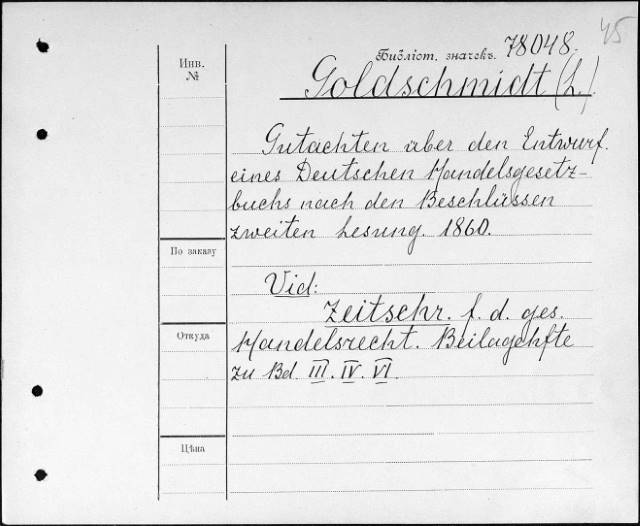 45
Библіот. значекъ. 78048.
Инв.
№
Goldschmidt (L.)
Gutachten uber den Entwurf.
eines Deutschen Handelsgesetz-
buchs nach den Beschlüssen
zweiten Lesung. 1860.
По заказу
Vid:
Zeitschr. f. d. ges.
Откуда
Handelsrecht. Beilagehfte
zu Bd. III. IV. VI.
Цѣна